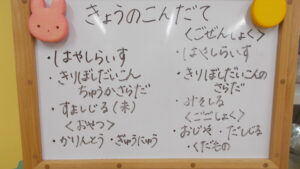 きょうのこんだて
・はやしらいす
・きりぼしだいこん
ちゅうかさらだ
・すましじる(末)
<おやつ>
・かりんとう・ぎゅうにゅう
<ごぜんしょく>
・はやしらいす
・きりぼしだいこんの
さらだ
・みそしる
<ごごしょく>
・おじや・だしじる
・くだもの